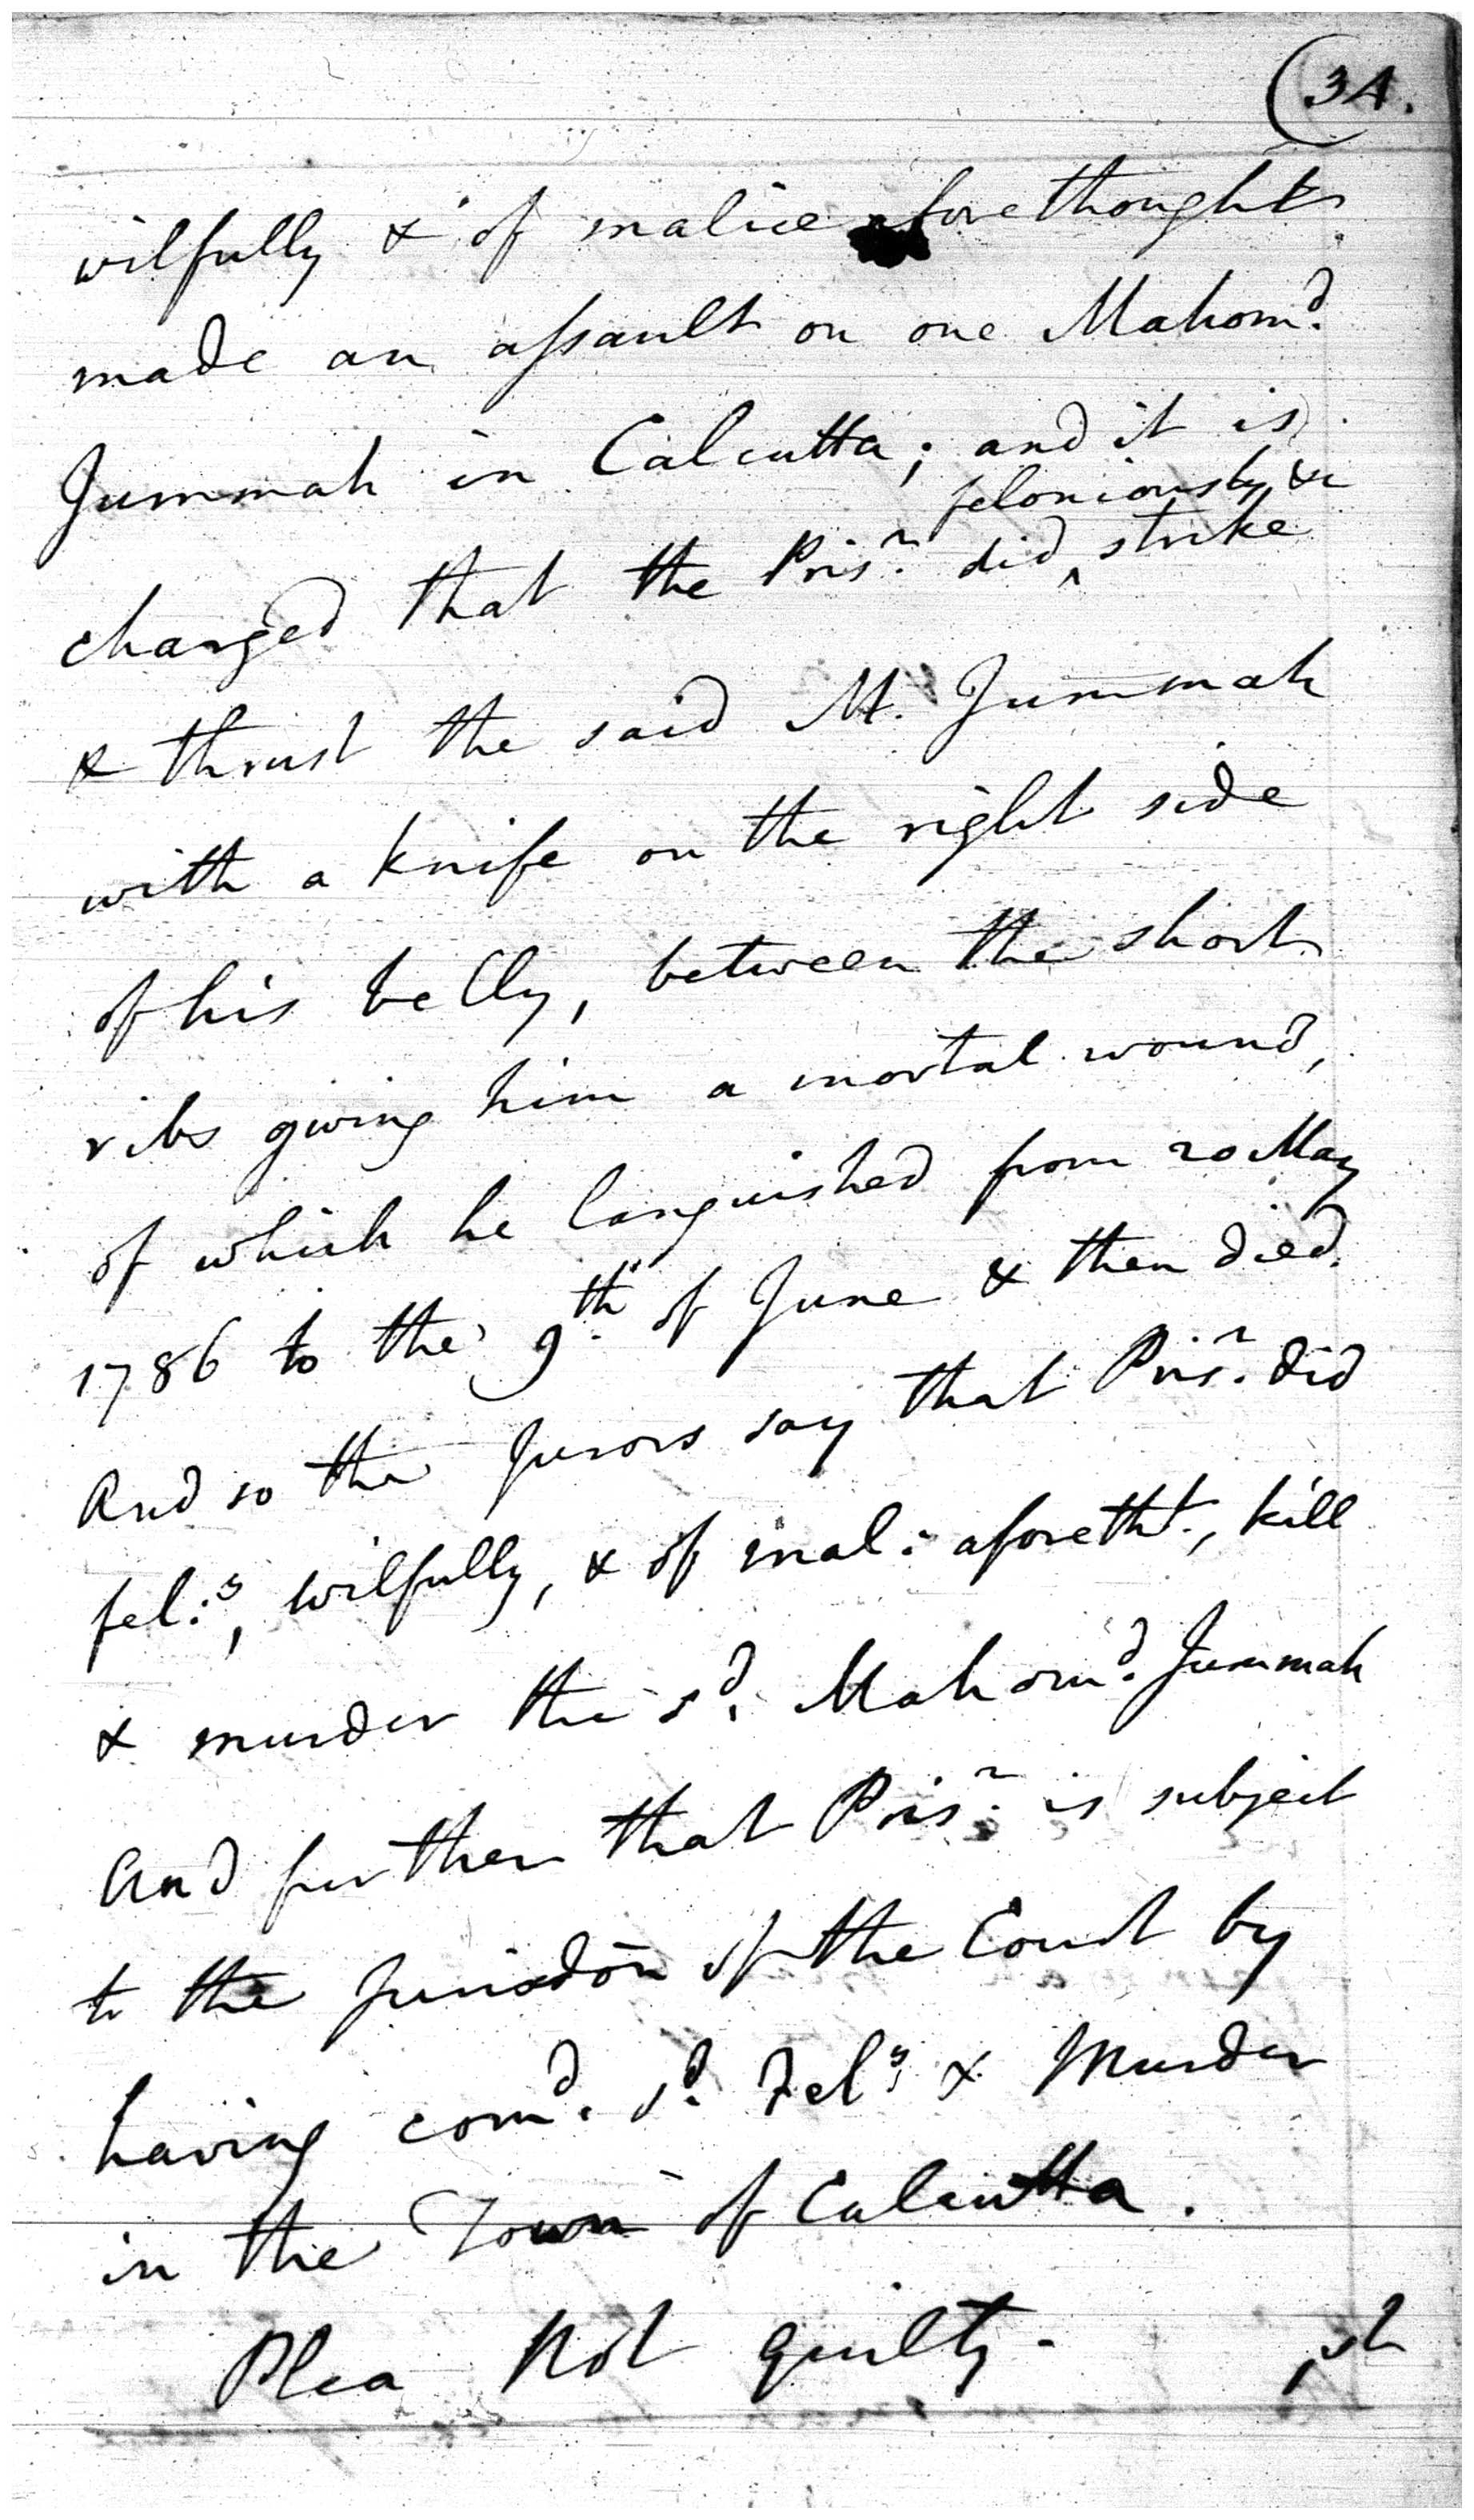 (34.
wilfully & of malice aforethought
made an assault on one Mahomd.
Jummah in Calcutta; and it is
feloniously &c
charged that the Prisr. did ^ strike
& thrust the said M. Jummah
with a knife on the right side
of his belly, between the short
ribs giving him a mortal wound,
of which he languished from 20 May
1786 to the 9th. of June & then died.
And so the Jurors say that Prisr. did
fel:s, wilfully, & of mal: aforetht., kill
& murder the sd. Mahomd. Jummah
And further that Prisr. is subject
to the Jurisdōn of the Court by
having comd. sd. Fels & Murder
in the Town of Calcutta.
Plea Not guilty. 1st